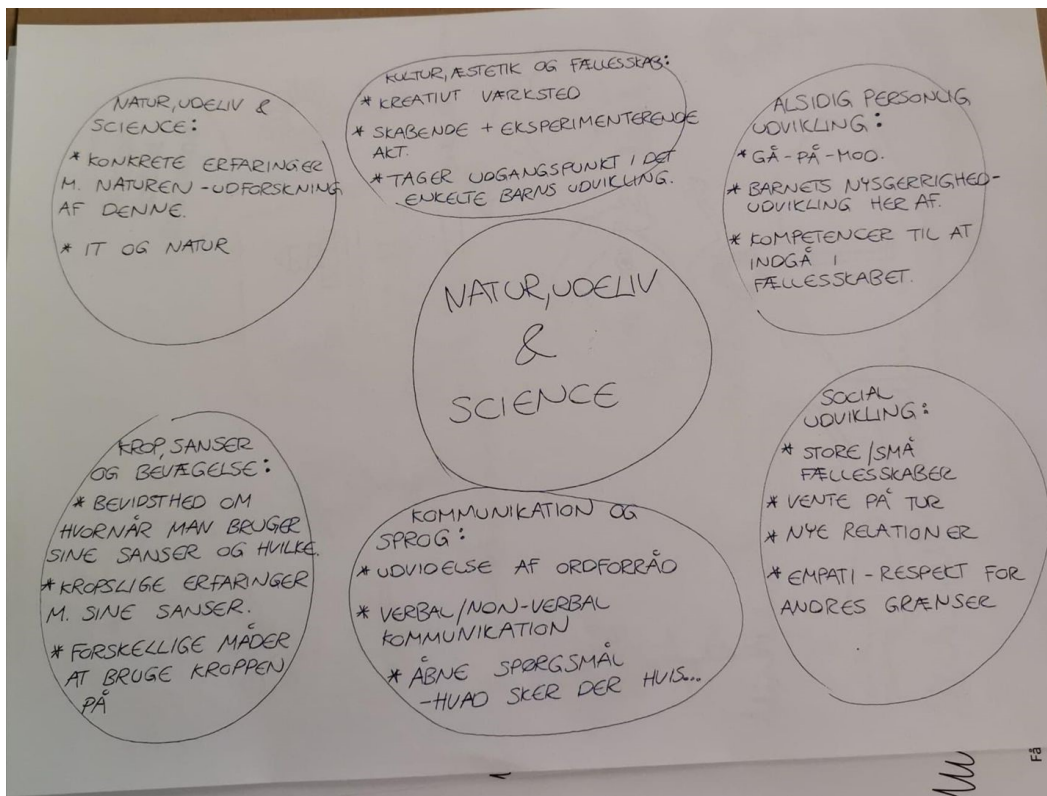 NATUR, UDELIV &
SCIENCE:
* KONKRETE ERFARINGER
M. NATUREN - UDFORSKNING
AF DENNE.
* IT OG NATUR
KULTUR, ÆSTETIK OG FÆLLESSKAB:
* KREATIVT VÆRKSTED
* SKABENDE + EKSPERIMENTERENDE
AKT.
* TAGER UDGANGSPUNKT I DET
ENKELTE BARNS UDVIKLING.
ALSIDIG PERSONLIG
UDVIKLING:
* GÅ-PÅ-MOD.
* BARNETS NYSGERRIGHED-
UDVIKLING HER AF.
* KOMPETENCER TIL AT
INDGÅ I
FÆLLESSKABET.
NATUR, UDELIV
&
SCIENCE
KROP, SANSER
OG BEVÆGELSE:
* BEVIDSTHED OM
HVORNÅR MAN BRUGER
SINE SANSER OG HVILKE.
* KROPSLIGE ERFARINGER
M. SINE SANSER.
* FORSKELLIGE MÅDER
AT BRUGE KROPPEN
PÅ
KOMMUNIKATION OG
SPROG:
* UDVIDELSE AF ORDFORRÅD
* VERBAL/NON-VERBAL
KOMMUNIKATION
* ÅBNE SPØRGSMÅL
- HVAD SKER DER HVIS...
SOCIAL
UDVIKLING:
* STORE/SMÅ
FÆLLESSKABER
* VENTE PÅ TUR
* NYE RELATIONER
* EMPATI - RESPEKT FOR
ANDRES GRÆNSER
Få